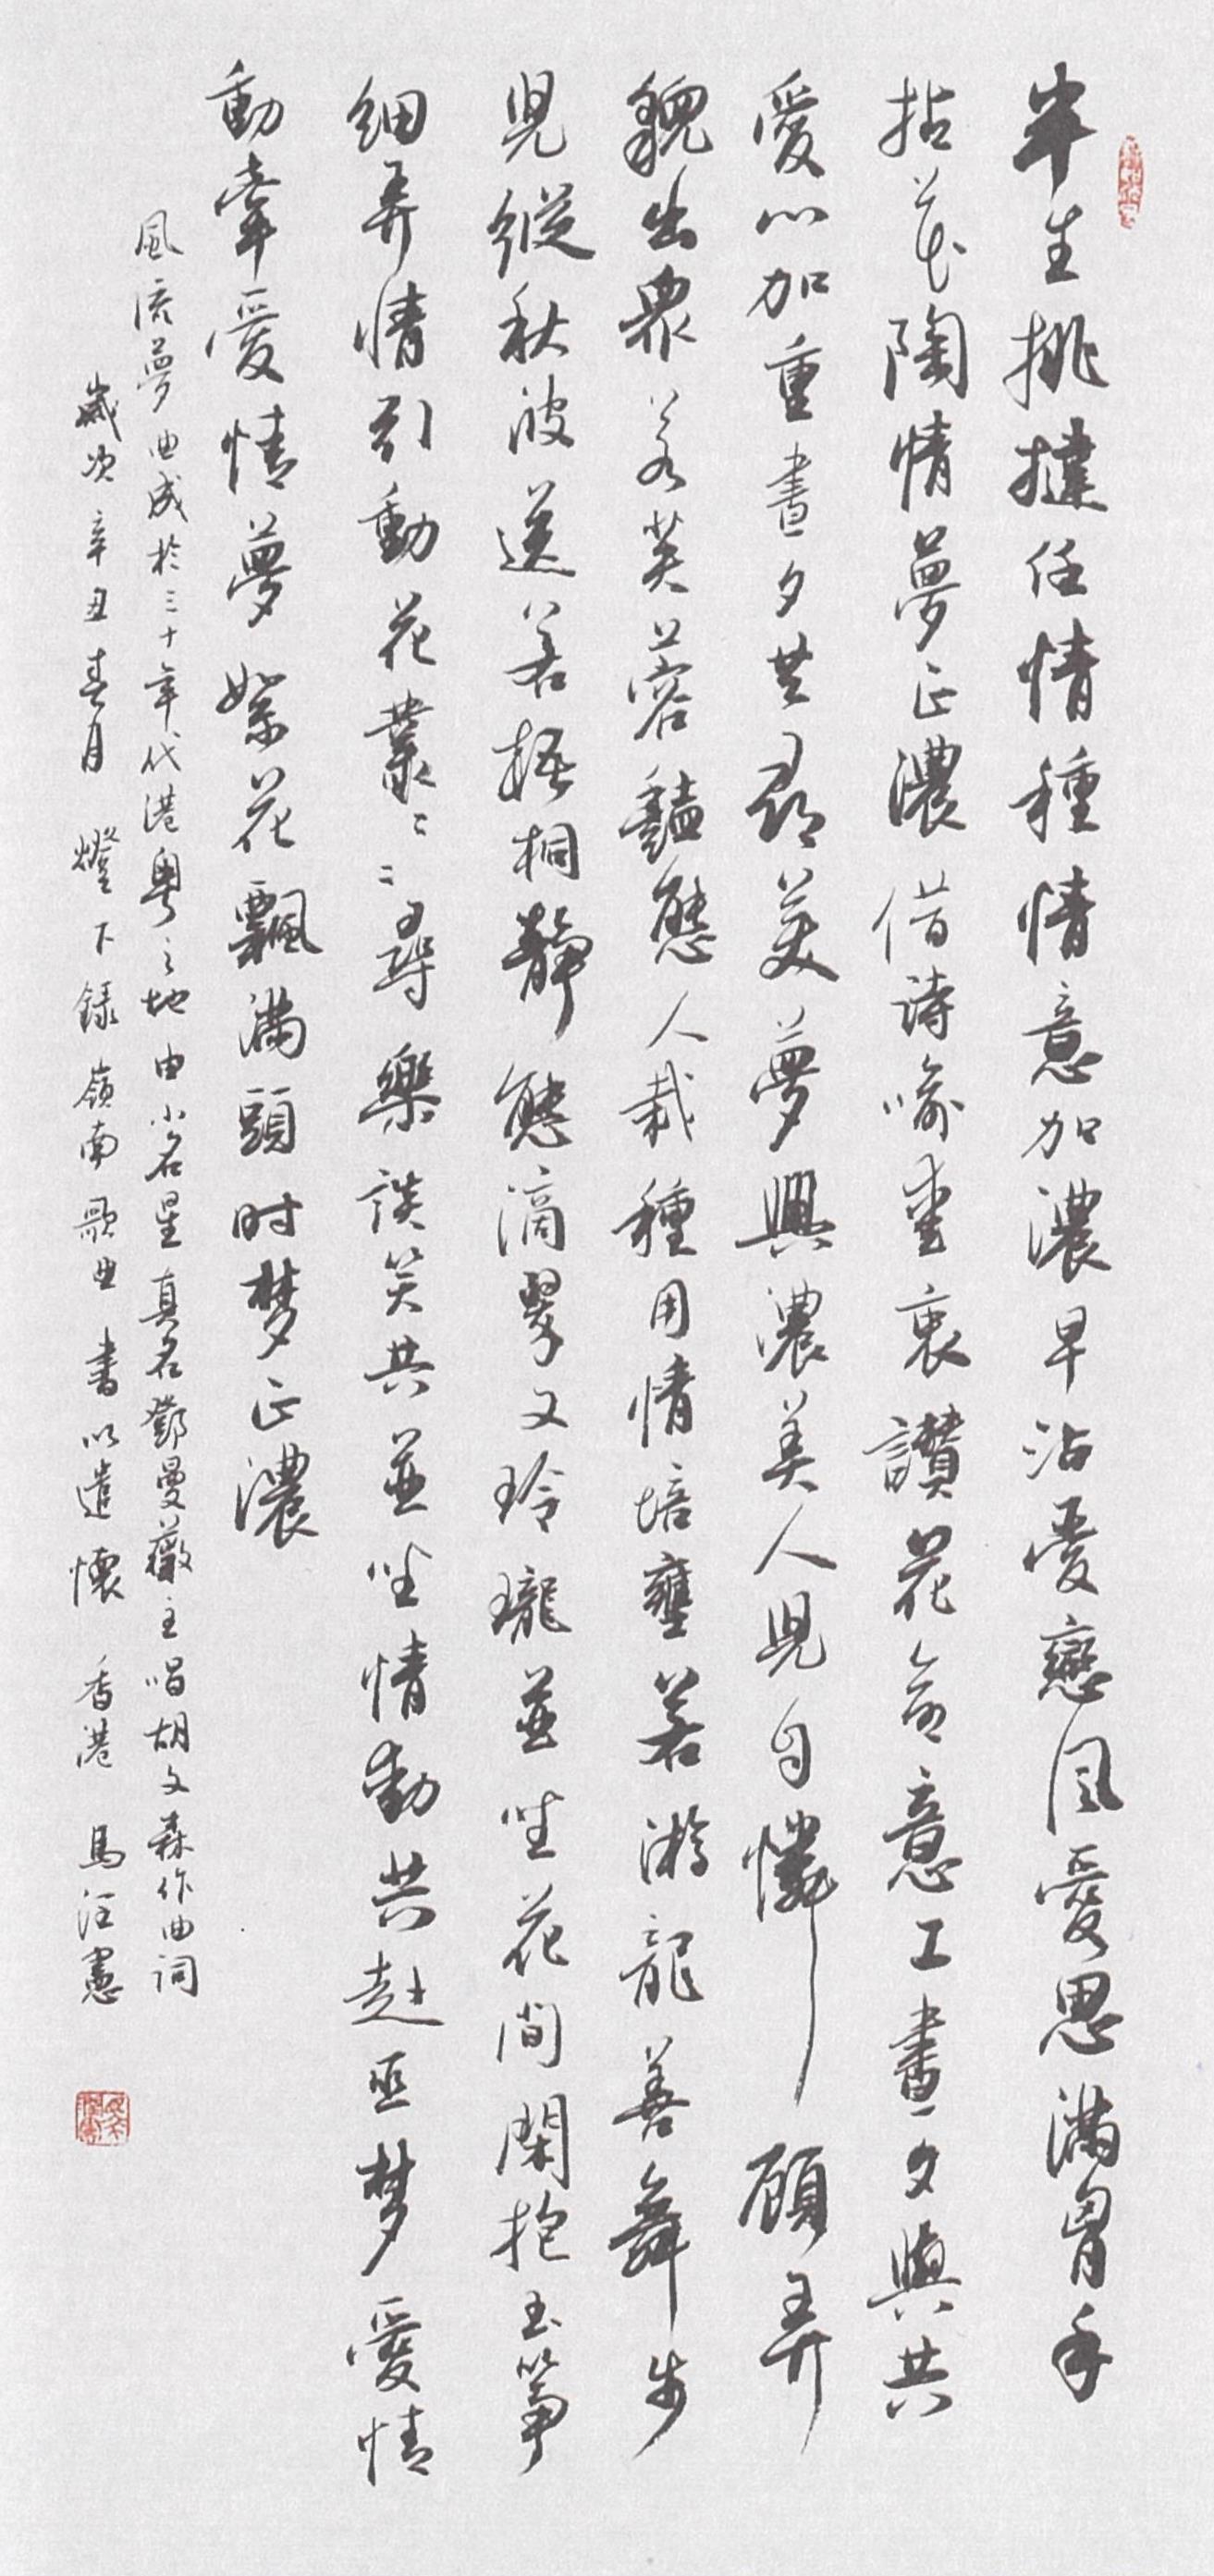 半生挑撻任情種情意加濃早沾愛戀風愛思滿胸手
拈花陶情夢正濃借詩喻衷讚花命意工晝夕與共
愛心加重晝夕共尋美夢興濃美人兒自憐顧弄
貌出眾若芙蓉豔態人栽種用情培壅若游龍善舞步
兒縱秋波送若梧桐靜態滴翠又玲瓏並坐花間閑抱玉箏
細弄情引動花叢〻〻尋樂談笑共並坐情動共赴巫梦愛情
動牽愛情夢絮花飄滿頭时梦正濃
風流夢曲成於三十年代港粵之地由小名星真名鄧曼薇主唱胡文森作曲詞
歲次辛丑春月燈下錄嶺南歌曲書以遣懷香港馬汪憲